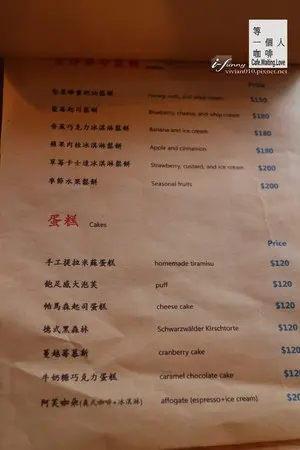 等一個人咖啡
Cafe.Waiting.Love
i-funny
vivian010.pixnet.net
Price
堅果蜂蜜鮮奶油鬆餅 Honey, nuts, and whip cream $150
藍莓起司鬆餅 Blueberry, cheese, and whip cream $180
香蕉巧克力冰淇淋鬆餅 Banana and ice cream $180
蘋果肉桂冰淇淋鬆餅 Apple and cinnamon $180
草莓卡士達冰淇淋鬆餅 Strawberry, custard, and ice cream $200
季節水果鬆餅 Seasonal fruits $200
蛋糕 Cakes
Price
手工提拉米蘇蛋糕 homemade tiramisu $120
飽足感大泡芙 puff $120
帕馬森起司蛋糕 cheese cake $120
德式黑森林 Schwarzwälder Kirschtorte $120
蔓越莓慕斯 cranberry cake $120
牛奶糖巧克力蛋糕 caramel chocolate cake $120
阿芙咖朵(義式咖啡+冰淇淋) affogate (espresso+ice cream) $200